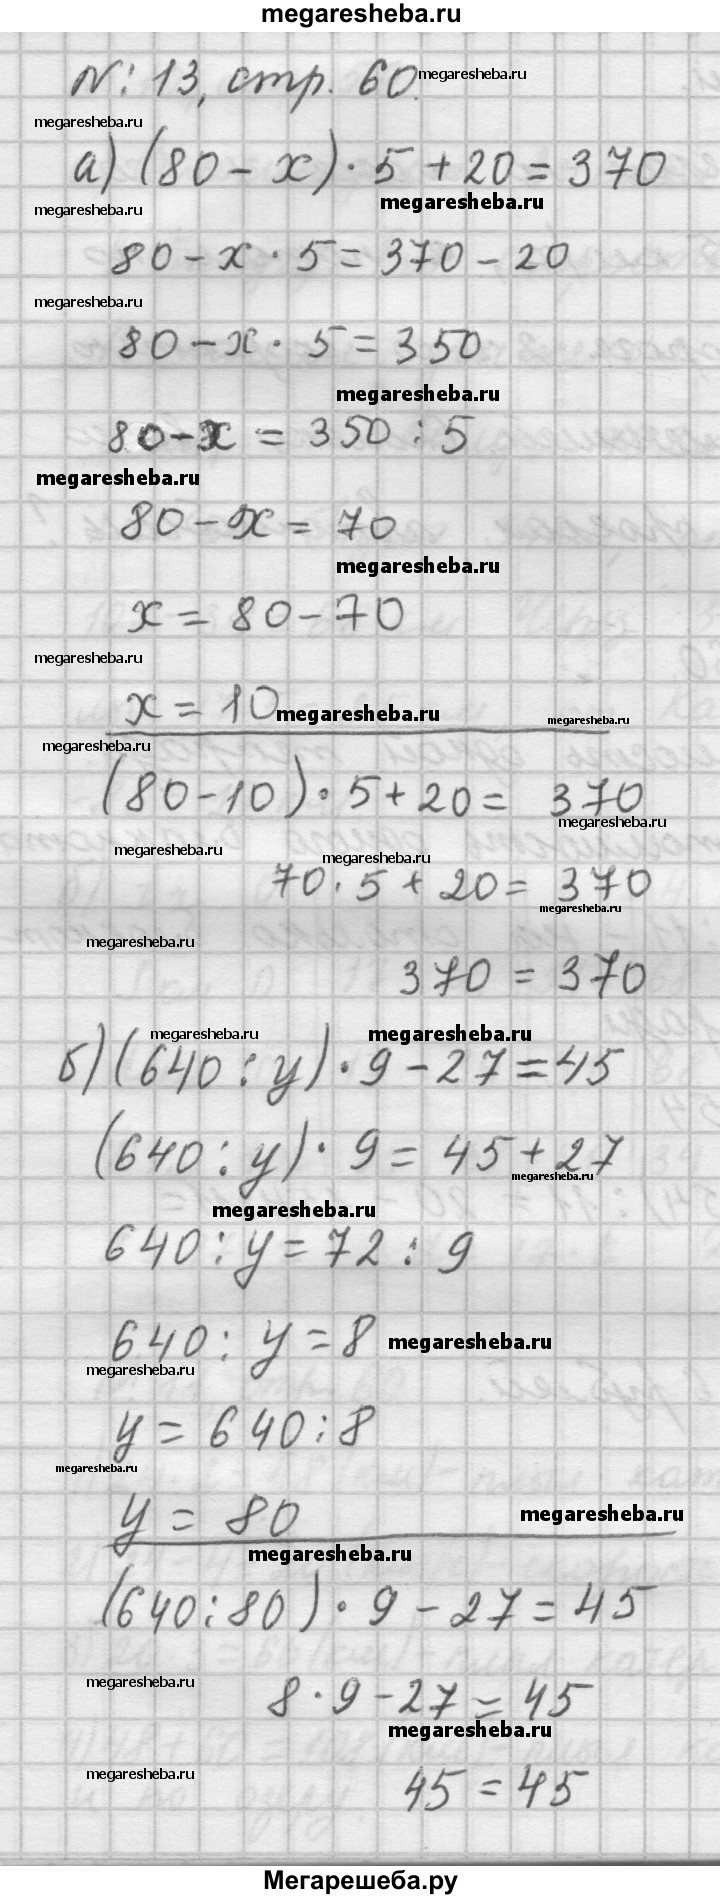 megaresheba.ru
N: 13, стр. 60. megaresheba.ru
megaresheba.ru
а) (80 - х) · 5 + 20 = 370
megaresheba.ru megaresheba.ru
80 - х · 5 = 370 - 20
megaresheba.ru
80 - х · 5 = 350
megaresheba.ru
80 - х = 350 : 5
megaresheba.ru
80 - х = 70
megaresheba.ru
х = 80 - 70
megaresheba.ru
х = 10 megaresheba.ru megaresheba.ru
megaresheba.ru
(80 - 10) · 5 + 20 = 370
megaresheba.ru
megaresheba.ru megaresheba.ru
70 · 5 + 20 = 370
megaresheba.ru
megaresheba.ru
370 = 370
megaresheba.ru megaresheba.ru
б) (640 : у) · 9 - 27 = 45
(640 : у) · 9 = 45 + 27
megaresheba.ru
megaresheba.ru
640 : у = 72 : 9
640 : у = 8 megaresheba.ru
megaresheba.ru
у = 640 : 8
megaresheba.ru
у = 80 megaresheba.ru
megaresheba.ru
(640 : 80) · 9 - 27 = 45
megaresheba.ru
8 · 9 - 27 = 45
megaresheba.ru
megaresheba.ru
45 = 45
Мегарешеба.ру